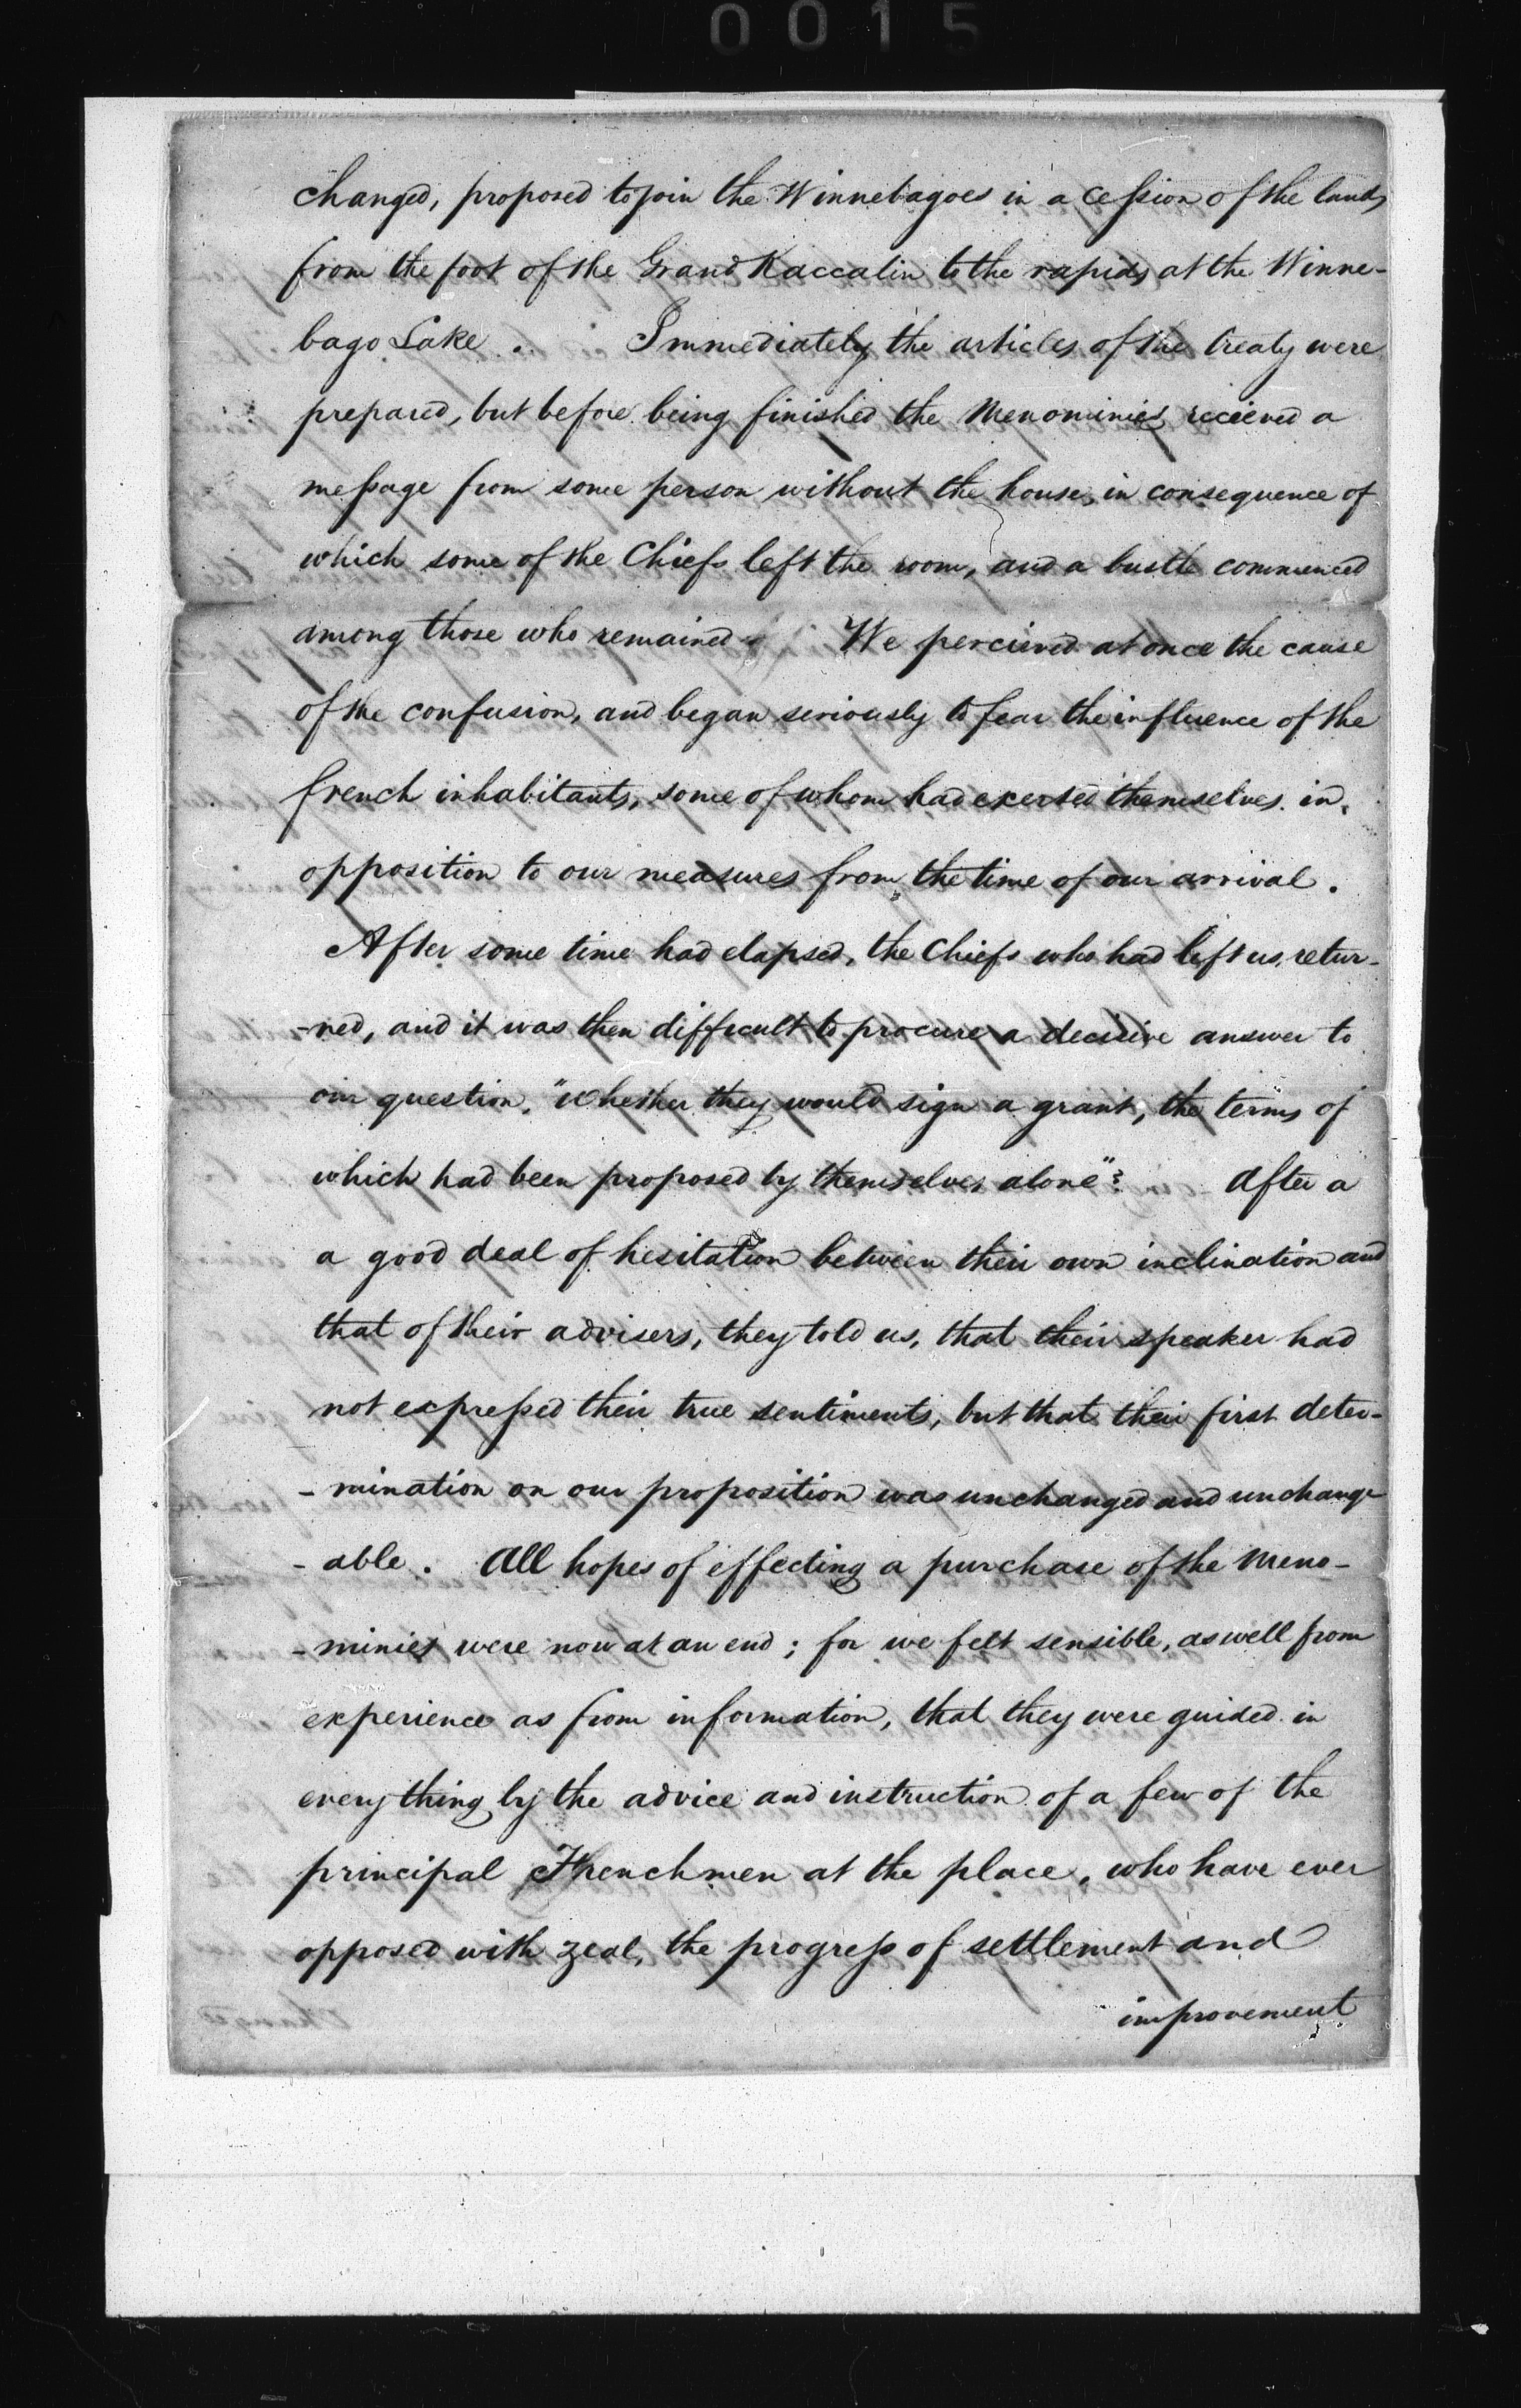 0015
changed, proposed to join the Winnebagoes in a cession of the lands
from the foot of the Grand Kaccalin to the rapids at the Winne-
bago Lake. Immediately the articles of the treaty were
prepared, but before being finished the Menominies recieved a
message from some person without the house, in consequence of
which some of the Chiefs left the room, and a bustle commenced
among those who remained. We percieved at once the cause
of the confusion, and began seriously to fear the influence of the
french inhabitants, some of whom had exerted themselves in
opposition to our measures from the time of our arrival.
After some time had elapsed, the Chiefs who had left us, retur-
-ned, and it was then difficult to procure a decisive answer to
our question, "whether they would sign a grant, the terms of
which had been proposed by themselves alone"? After a
a good deal of hesitation between their own inclination and
that of their advisers, they told us, that their speaker had
not expressed their true sentiments, but that their first deter-
-mination on our proposition was unchanged and unchange
-able. All hopes of effecting a purchase of the Meno-
-minies were now at an end; for we felt sensible, as well from
experience as from information, that they were guided in
every thing by the advice and instruction of a few of the
principal Frenchmen at the place, who have ever
opposed with zeal, the progress of settlement and
improvement